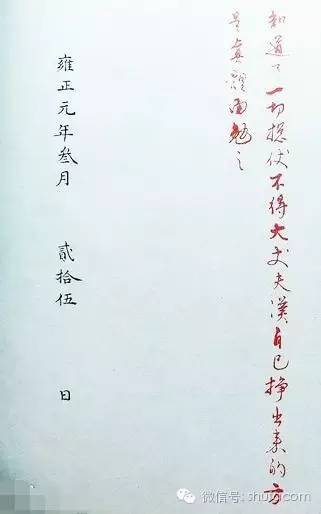 知道了一切总仗不得大丈夫汉自己挣出来的方
是真体面勉之
雍正元年叁月 贰拾伍 日
微信号: shufgj_com